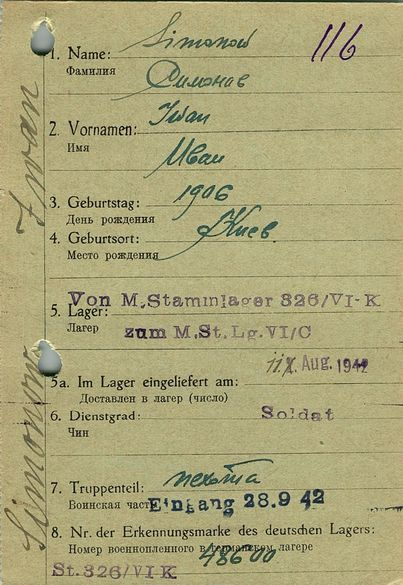 Simonow
116
1. Name:
Фамилия
Симонав
Iwan
2. Vornamen:
Имя
Иван
1906
3. Geburtstag:
День рождения
Киев.
4. Geburtsort:
Место рождения
Von M.Stammlager 326/VI-K
5. Lager:
Лагер
zum M.St.Lg.VI/C
Aug. 1942
5a. Im Lager eingeliefert am:
Доставлен в лагер (число)
6. Dienstgrad:
Soldat
Чин
пехота
7. Truppenteil:
Воинская часть
Eingang 28.9 42
8. Nr. der Erkennungsmarke des deutschen Lagers:
Номер военнопленного в германском лагере
48600
St.326/VI K
Simonow Iwan